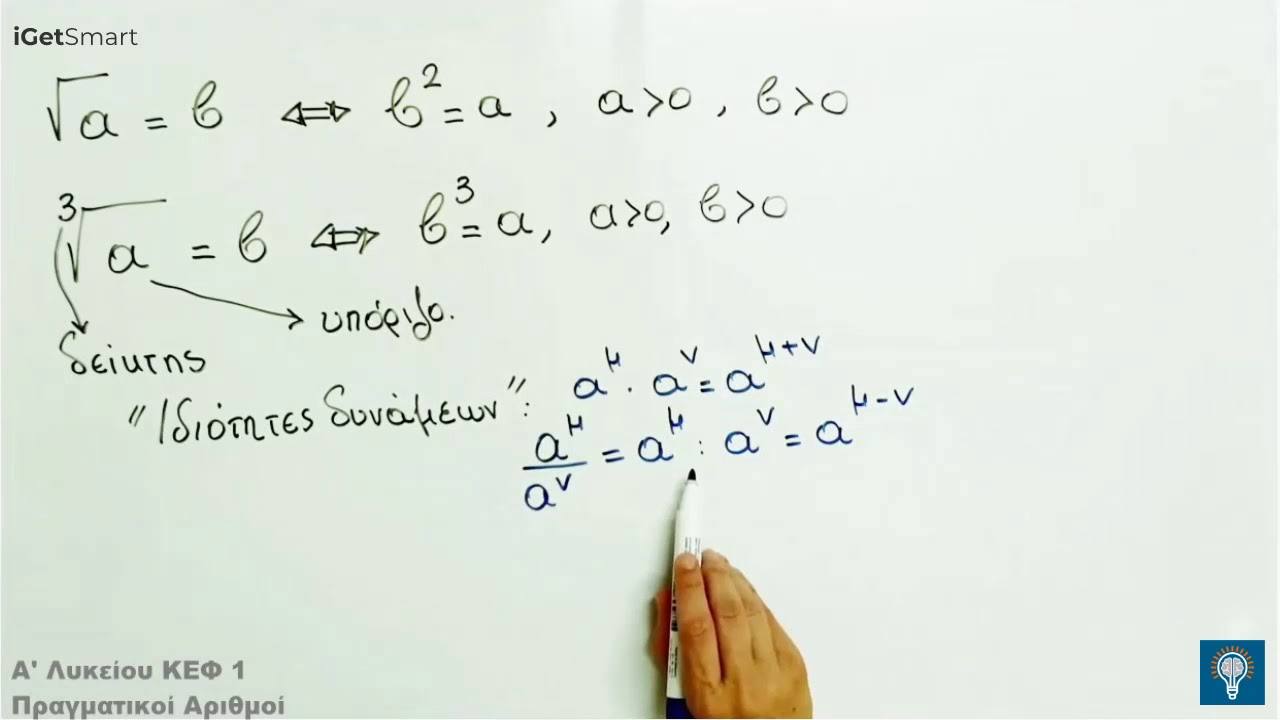 iGetSmart
√a = β ⇔ β² = a , a>0 , β>0
³√a = β ⇔ β³ = a, a>0, β>0
υπόριζο.
δείκτης
"Ιδιότητες δυνάμεων": a^μ · a^ν = a^(μ+ν)
a^μ/a^ν = a^μ : a^ν = a^(μ-ν)
Α' Λυκείου ΚΕΦ 1
Πραγματικοί Αριθμοί